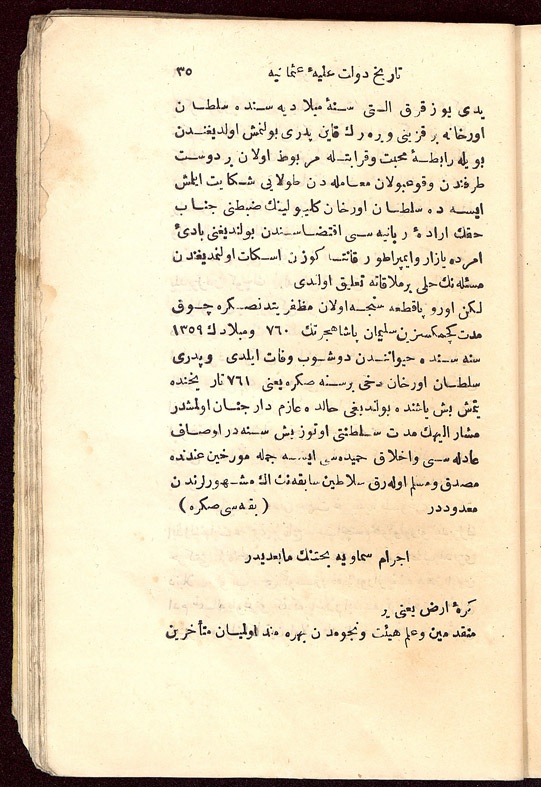 تاریخ دولت علیهٔ عثمانیه ٣٥
یدی یوز قرق التی سنهٔ میلادیه سنده سلطان
اورخانه بر قزینی ویره رك قاین پدری بولنمش اولدیغندن
بویله رابطهٔ محبت وقرابتله مربوط اولان بر دوست
طرفندن وقوعبولان معامله دن طولایی شکایت ایلمش
ایسه ده سلطان اورخان کلیبولینك ضبطی جناب
حقك ارادهٔ ربانیه سی اقتضاسندن بولندیغنی بادئ
امرده یازار وایمپراطور قانتا کوزن اسکات اولنمدیغندن
مسئله نك حلی بر ملاقاته تعلیق اولندی
لکن اوروپا قطعه سنجه اولان مظفریتدنصکره چوق
مدت کچمکسزن سلیمان پاشا هجرتك ٧٦٠ ومیلادك ١٣٥٩
سنه سنده حیواننـدن دوشوب وفات ایلدی وپدری
سلطان اورخان دخی برسنه صکره یعنی ٧٦١ تاریخنده
یتمش بش یاشنده بولندیغی حالده عازم دار جنان اولمشدر
مشار الیهك مدت سلطنتی اوتوز بش سنه در اوصاف
عادله سی واخلاق حمیده سی ایسه جمله مورخین عندنده
مصدق ومسلم اوله رق سلاطین سابقه نك اك مشهورلرندن
معدوددر (بقیه سی صکره)
اجرام سماویه بحثنك مابعدیدر
کرهٔ ارض یعنی یر
متقدمین وعلم هیئت ونجومدن بهره مند اولمیان متأخرین